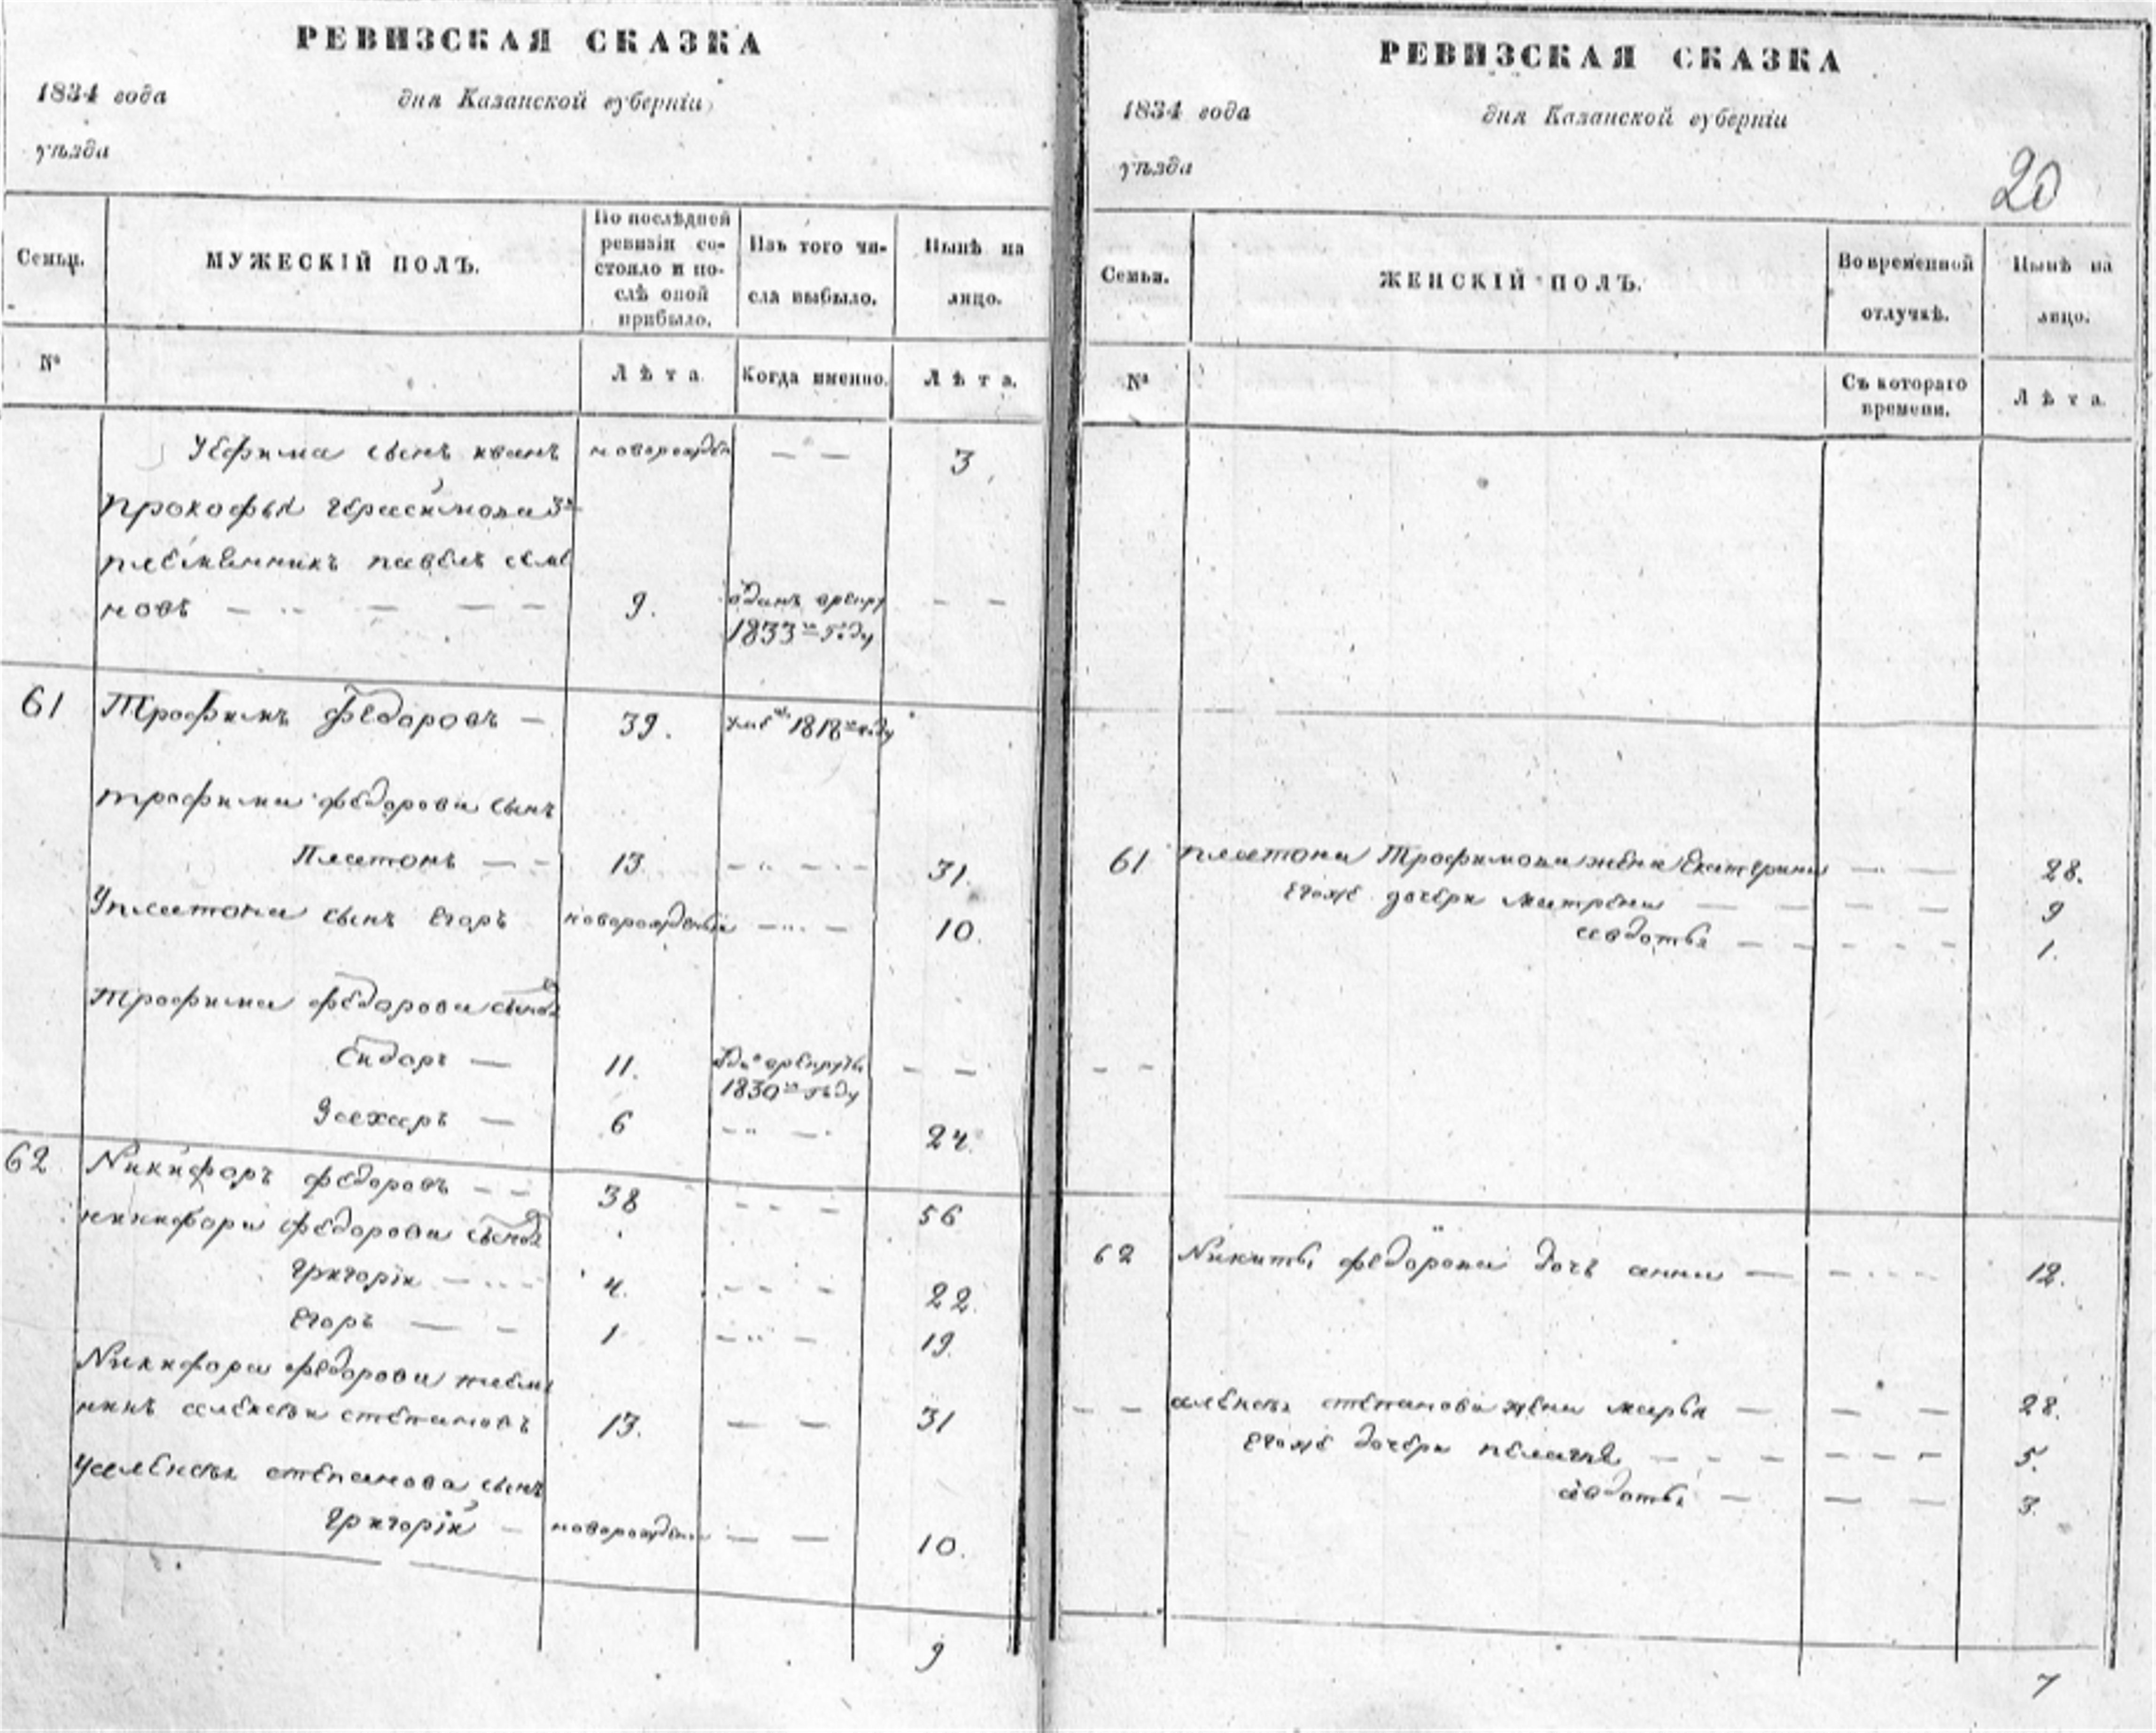 РЕВИЗСКАЯ СКАЗКА
1834 года дня Казанской губерніи
уѣзда
Семьи. МУЖЕСКІЙ ПОЛЪ. По послѣдней ревизіи состояло и послѣ оной прибыло. Изъ того числа выбыло. Нынѣ на лицо.
№ Лѣта. Когда именно. Лѣта.
Уефима сынъ иванъ новорожден — — 3
прокофья герасимова 3й
племянникъ павелъ семе
новъ — — — — 9. — —
1833го году
61 Трофимъ федоровъ — 39. уме 1818го году
трофима федорова сынъ
Платонъ — — 13. — — 31.
Уплатона сынъ Егоръ новорожденны — — 10.
Трофима федорова сынова
Сидоръ — 11. — —
1830го году
Захаръ — 6 — — 24.
62 Никифоръ федоровъ — — 38 — — — 56
никифора федорова сынова
григорій — — 4. — — — 22.
Егоръ — — 1 — — 19.
Никифора федорова племя
никъ алексѣй степановъ 13. — — 31
Уалексѣя степанова сынъ
григорій — новорожден — — 10.
9
РЕВИЗСКАЯ СКАЗКА
1834 года дня Казанской губерніи
уѣзда
20
Семьи. ЖЕНСКІЙ ПОЛЪ. Во временной отлучкѣ. Нынѣ на лицо.
№ Съ котораго времени. Лѣта.
61 платона Трофимова жена Екатерина — — 28.
Егоже дочери матрена — — — — 9
авдотья — — — — 1.
— —
62 Никиты федорова дочь анна — — — 12.
— — алексѣя степанова жена марья — — — 28.
Егоже дочери пелагея — — — — — — 5.
авдотья — — — 3.
7